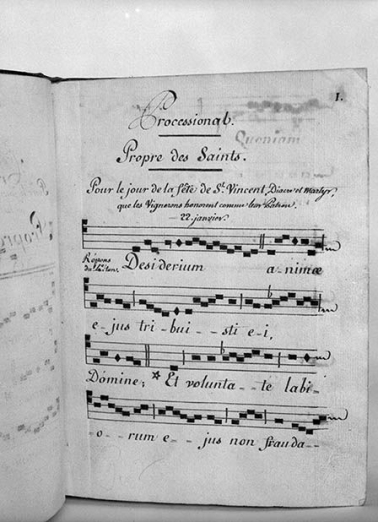 1.
Processional.
Propre des Saints.
Pour le jour de la fête de St. Vincent, Diacre et Martyr,
que les Vignerons honorent comme leur Patron.
— 22 janvier. —
Répons
Desiderium a-nimæ
e-jus tri-bui--sti e-i,
Domine; * Et volunta--te labi-
o--rum e--jus non frauda--
Quoniam